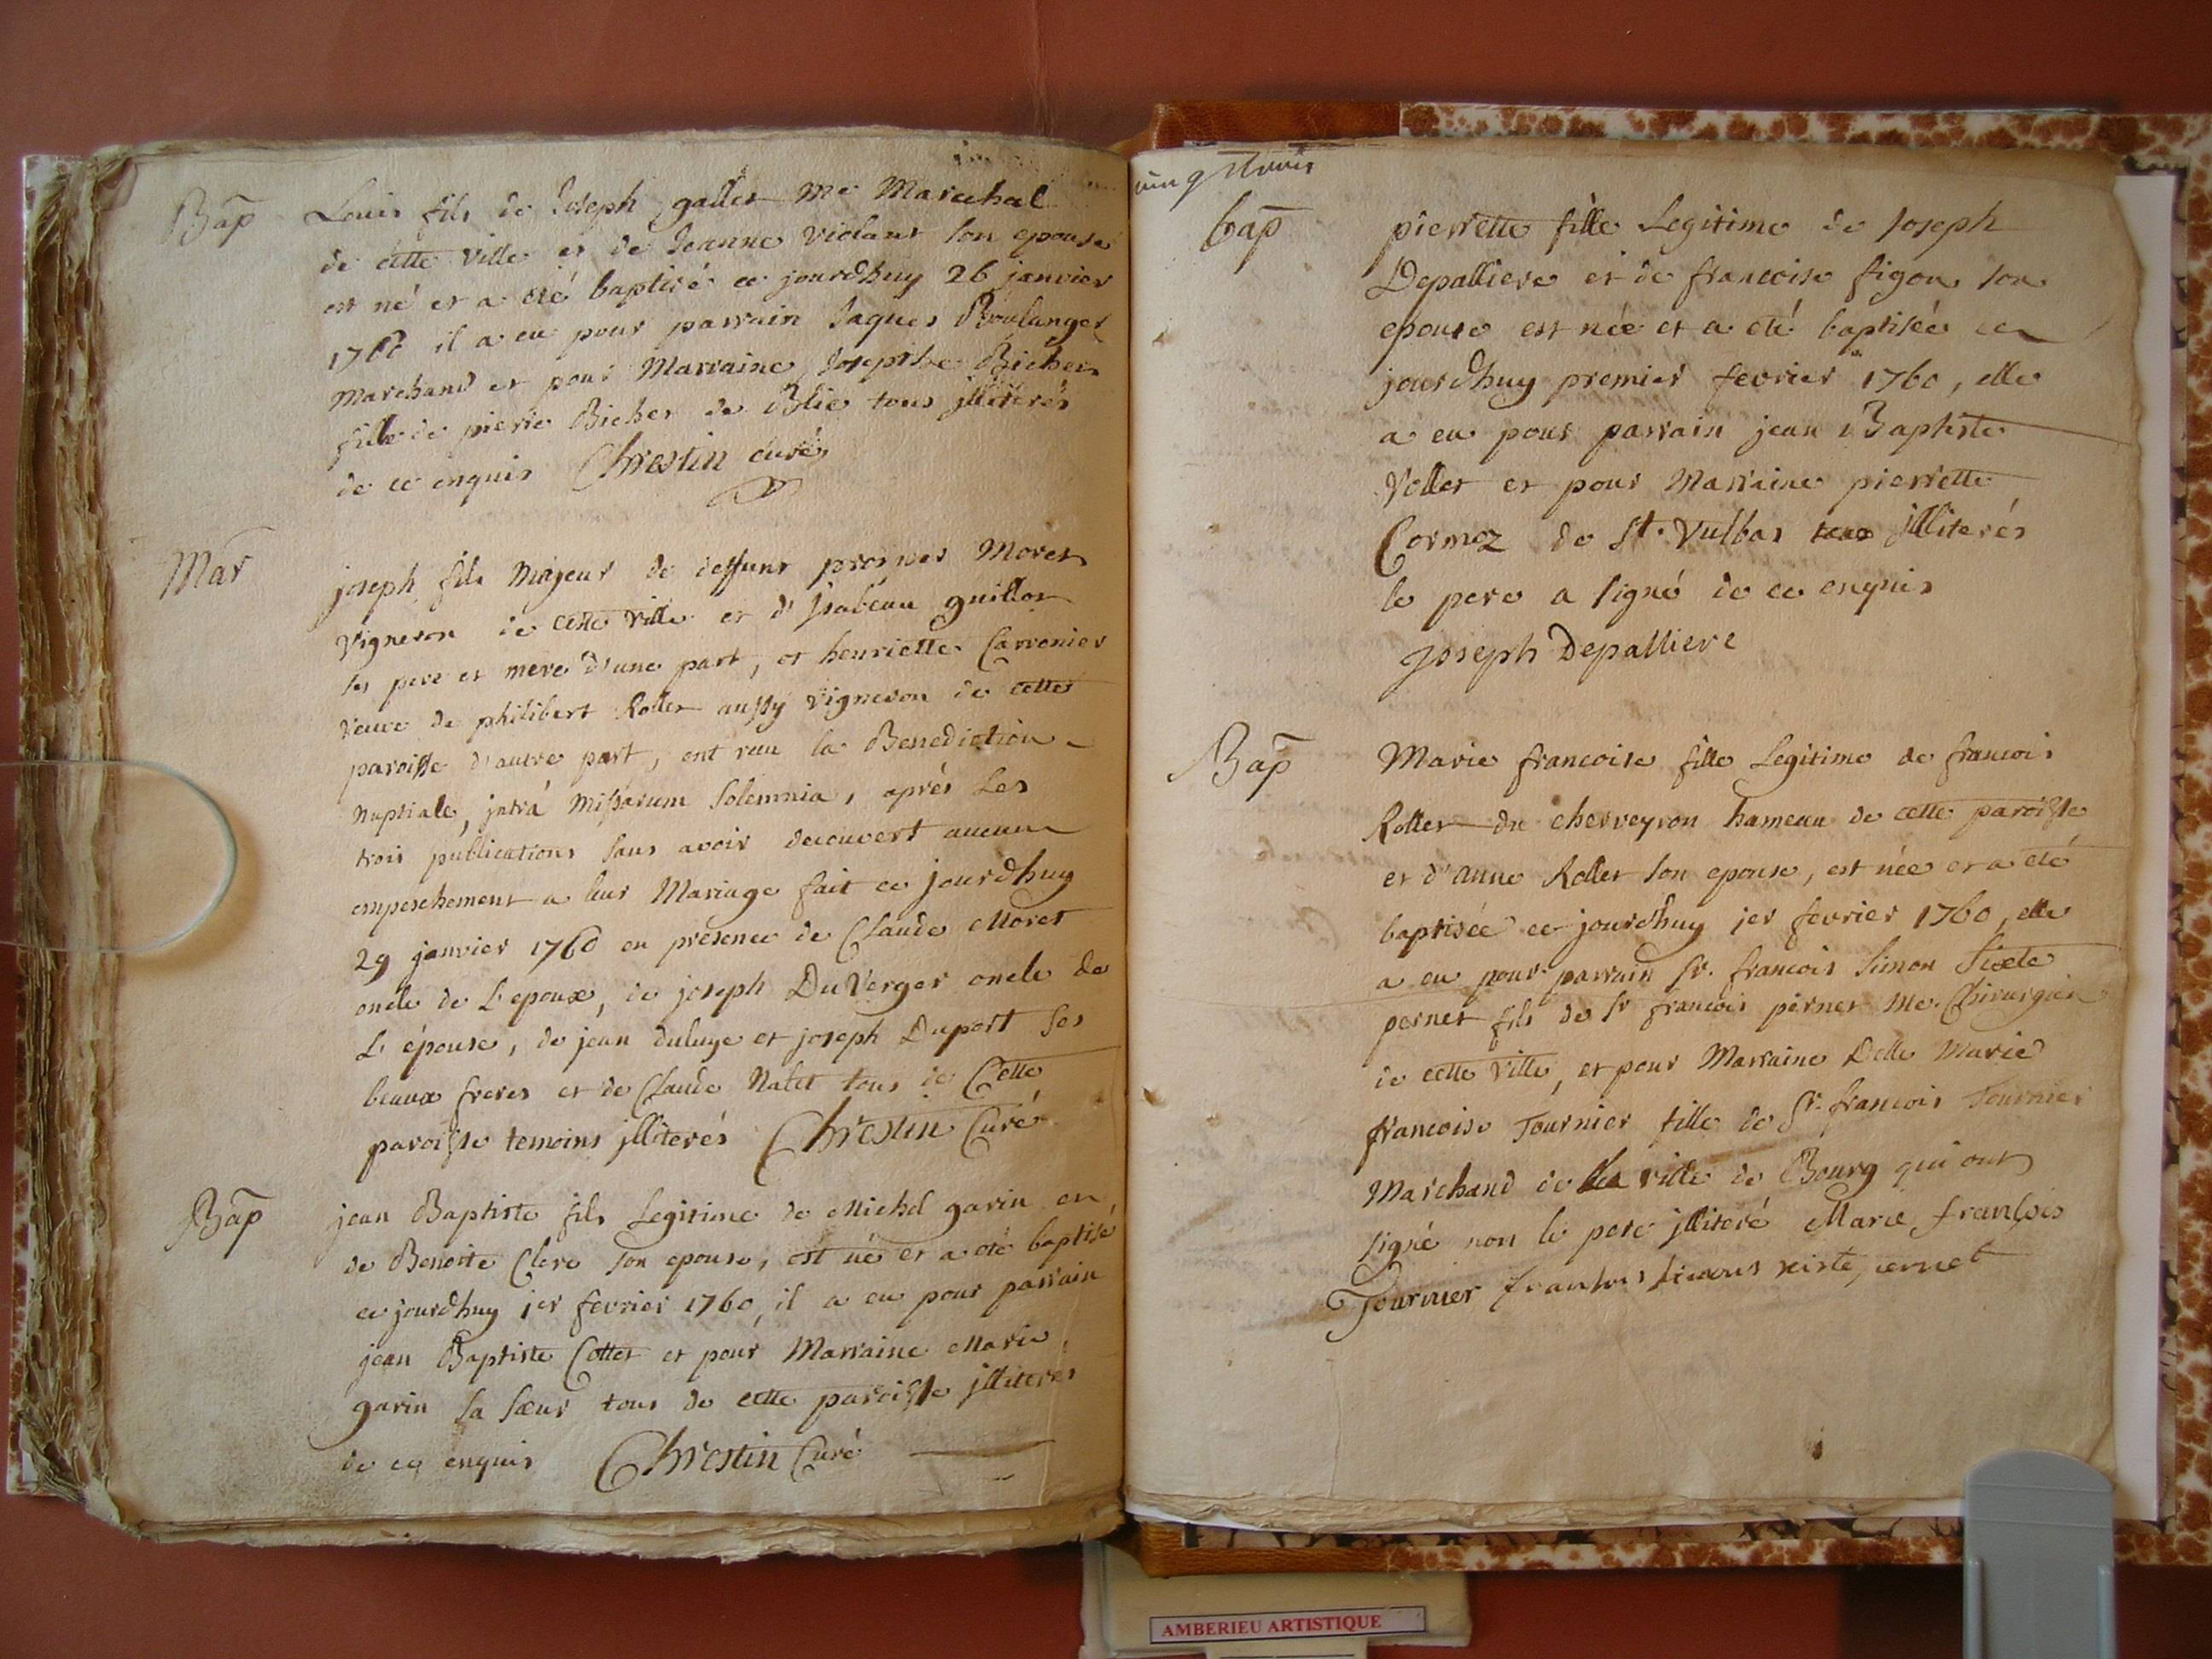 Bap
Louis fils de Joseph gallet Me Marechal
de cette ville et de Jeanne violant son epouse
est né et a eté baptisé ce jourdhuy 26 janvier
1760 il a eu pour parrain Jaques Boulanger
Marchand et pour Marraine Josephte Bicher
fille de pierre Bicher de Blie tous jlliterés
de ce enquis Chrestin curé
Mar
joseph fils Majeur de deffunt prosper Moret
vigneron de cette ville et d'jsabeau guillot
ses pere et mere d'une part, et henriette Carronier
veuve de philibert Rollet aussy vigneron de cette
paroisse d'autre part, ont reçu la Benediction
Nuptiale, jntrá Missarum solemnia, aprés Les
trois publications sans avoir decouvert aucun
empeschement a leur Mariage fait ce jourdhuy
29 janvier 1760 en presence de Claude Moret
oncle de L'epoux, de joseph DuVerger oncle de
L'épouse, de jean duluye et joseph Duport ses
beaux freres et de Claude Nalet tous de Cette
paroisse temoins jlliterés Chrestin Curé
Bap
jean Baptiste fils Legitime de Michel garin et
de Benoite Clerc son epouse, est né et a eté baptisé
ce jourdhuy jer fevrier 1760, il a eu pour parrain
jean Baptiste Cottet et pour Marraine Marie
garin sa sœur tous de cette paroisse jlliterés
de ce enquis Chrestin Curé
bap
pierrette fille Legitime de Joseph
Depalliere et de francoise figon son
epouse est née et a eté baptisée ce
jourdhuy premier fevrier 1760, elle
a eu pour parrain jean Baptiste
Vollet et pour Marraine pierrette
Cormoz de St. Vulbas jlliterés
le pere a signé de ce enquis
Joseph Depalliere
Bap
Marie francoise fille Legitime de francois
Rollet du cherveyron hameau de cette paroisse
et d'anne Rollet son epouse, est née et a eté
baptisée ce jourdhuy jer fevrier 1760, elle
a eu pour parrain sr. francois Simon Sixte
pernet fils de sr francois pernet Me. Chirurgien
de cette ville, et pour Marraine Delle Marie
francoise Tournier fille de Sr. francois Tournier
Marchand de la ville de Bourg qui ont
signé non le pere jlliteré Marie françois
Tournier francois simons xiste pernet
AMBERIEU ARTISTIQUE